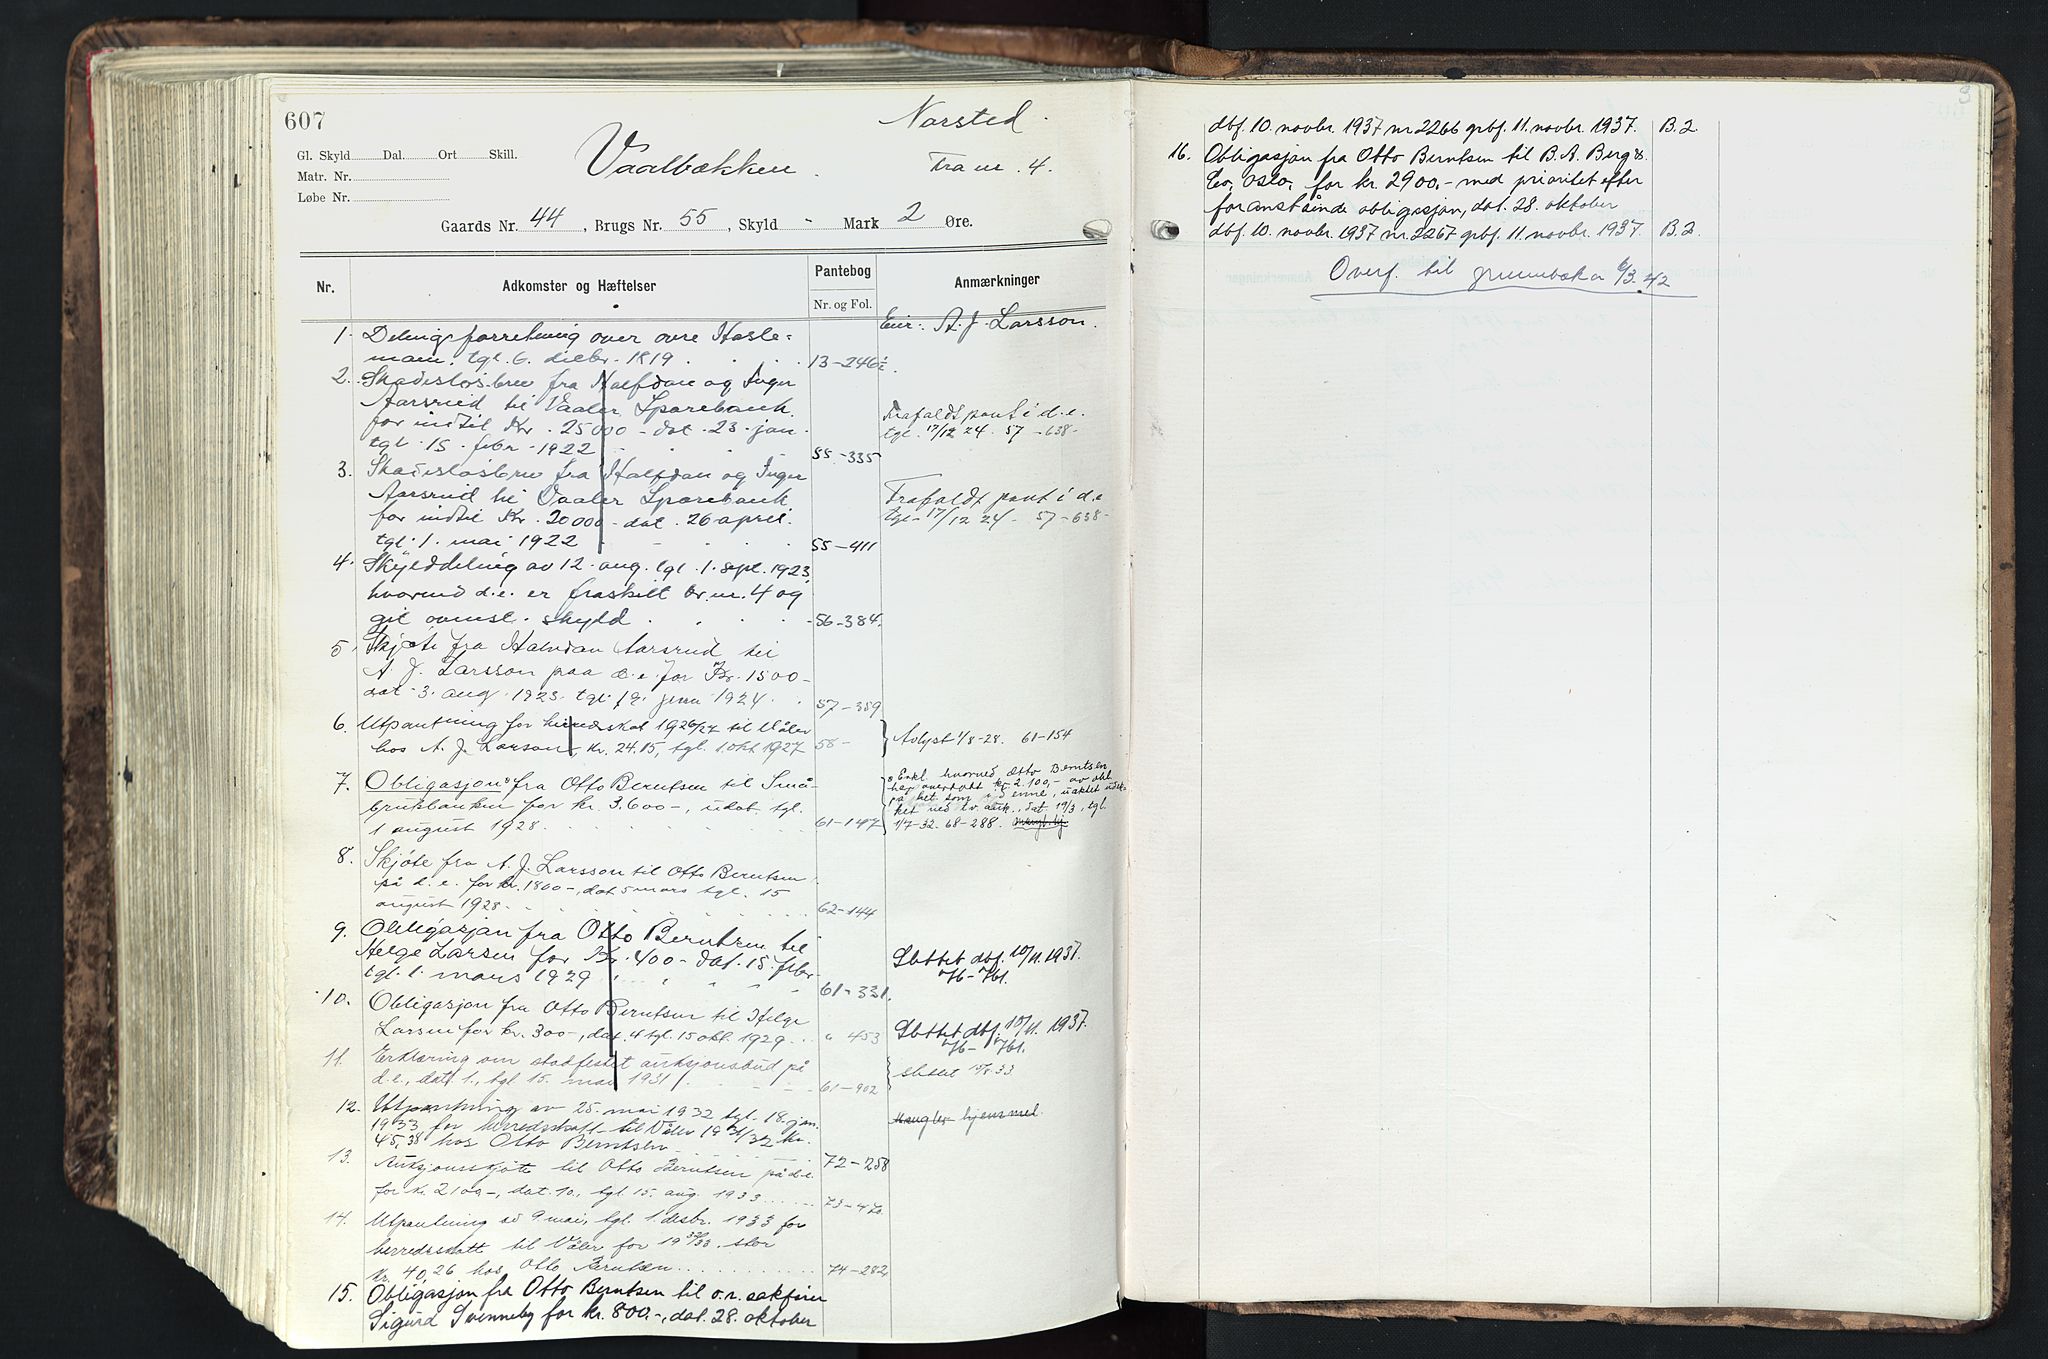 607
Norsted.
Gl. Skyld Dal. Ort Skill.
Matr. Nr.
Løbe Nr.
Vaalbækken.
Fra nr. 4.
Gaards Nr. 44, Brugs Nr. 55, Skyld - Mark 2 Øre.
Nr. Adkomster og Hæftelser Pantebog Anmærkninger
Nr. og Fol.
Eier: A. J. Larsson.
1. Delingsforretning over øvre Hasle-
moen. tgl. 6. decbr. 1819. 13-246
2. Skadesløsbrev fra Halfdan og Inger
Aarsrud til Vaaler Sparebank
for indtil Kr. 25000 - dat. 23. jan.
tgl. 15. febr. 1922 55-335
Frafaldt pant i d.e.
tgl. 17/12 24. 57-638-
3. Skadesløsbrev fra Halfdan og Inger
Aarsrud til Vaaler Sparebank
for indtil Kr. 20000 - dat. 26 april.
tgl. 1. mai 1922 55-411
Frafaldt pant i d.e
tgl. 17/12 24 - 57-638-
4. Skylddeling av 12. aug. tgl. 1. sept. 1923,
hvorved d.e. er fraskilt br.nr. 4 og
git ovenst. skyld 56-384.
5. Skjøte fra Halvdan Aarsrud til
A. J. Larsson paa d.e. for Kr. 1500-
dat. 3. aug. 1923. tgl. 1924. 57-359
6. Utpantning for herredsskat 1926/27 til Våler
hos A. J. Larsson, kr. 24.15, tgl. 1. okt 1927 58-
Avlyst 1/8-28. 61-154
7. Obligasjon fra Otto Berntsen til Små-
brukbanken for kr. 3.600-, udat. tgl.
1 august 1928. 61-147
Erkl. hvorved Otto Berntsen
har overdratt kr. 2.100,- av obl.
dat. 19/3, tgl.
1/7-32. 68-288.
8. Skjøte fra A. J. Larsson til Otto Berntsen
på d.e. for kr. 1800-, dat 5 mars tgl. 15
august 1928. 62-144
9. Obligasjon fra Otto Berntsen til
Helge Larsen for Kr. 400- dat. 15. febr
tgl. 1. mars 1929 61-331.
Slettet dbf. 10/11. 1937.
76-761.
10. Obligasjon fra Otto Berntsen til Helge
Larsen for kr. 300-, dat. 4 tgl. 15 okt. 1929. " 453
Slettet dbf. 10/11. 1937.
76-761.
11. Erklæring om stadfestet auksjonsbud på
d.e., dat. 1., tgl 15. mai 1931 61-902
slettet 15/8 33
12. Utpantning av 25. mai 1932 tgl. 18. jan.
1933 for herredsskatt til Våler 1931/32 kr.
45,38 hos Otto Berntsen 72-258
Mangler hjemmel.
13. Auksjonsskjøte til Otto Berntsen på d.e.
for kr. 2100-, dat. 10., tgl. 15. aug. 1933 73-470
14. Utpantning av 9 mai, tgl. 1. desbr. 1933 for
herredsskatt til Våler for 1932/33. stor
kr. 40,26 hos Otto Berntsen 74-282
15. Obligasjon fra Otto Berntsen til o.r. sakfører
Sigurd Svenneby for kr. 800,-, dat. 28. oktober
dbf. 10. novbr. 1937 nr 2266 grbf. 11. novbr. 1937. B.2
16. Obligasjon fra Otto Berntsen til B. A. Berg &
Co, Oslo, for kr. 2900,- med prioritet efter
foranstående obligasjon, dat. 28. oktober
dbf. 10. novbr. 1937 nr 2267 grbf. 11. novbr. 1937. B.2.
Overf. til grunnboka 6/3. 42